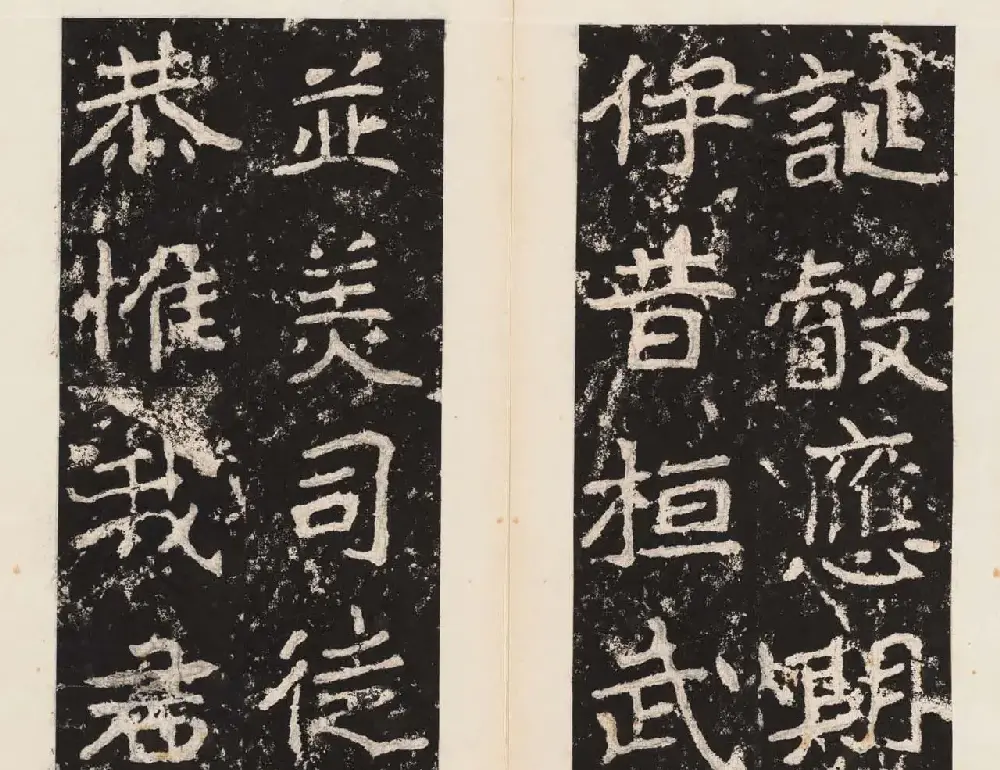 誕叡應期
伊昔桓武
並美司徒
恭惟我君